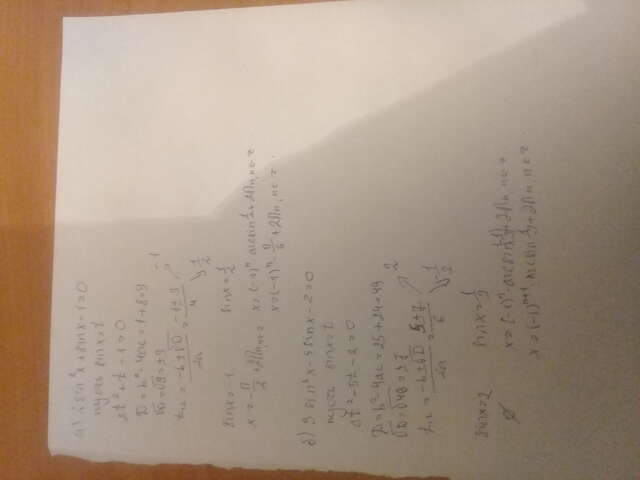 а) 2sin²x+sinx-1=0
пусть sinx=t
2t²+t-1=0
D=b²-4ac=1+8=9
√D=√9=±3
t₁,₂=(-b±√D)/2a=(-1±3)/4 → -1
↘ 1/2
sinx=-1 sinx=1/2
x=-π/2+2πn, n∈z x=(-1)ⁿ·arcsin 1/2+2πn, n∈z
x=(-1)ⁿ·π/6+2πn, n∈z.
б) 3sin²x-5sinx-2=0
пусть sinx=t
3t²-5t-2=0
D=b²-4ac=25+24=49
√D=√49=±7
t₁,₂=(-b±√D)/2a=(5±7)/6 → 2
↘ -1/3
sinx=2 sinx=1/3
∅ x=(-1)ⁿ·arcsin(-1/3)+2πn, n∈z
x=(-1)ⁿ⁺¹·arcsin 1/3+2πn, n∈z.